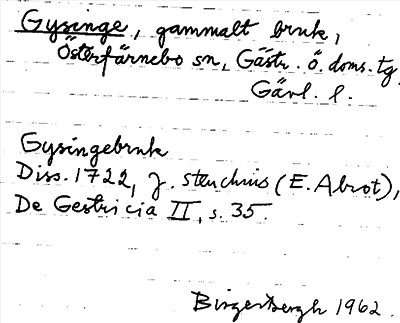 Gysinge, gammalt bruk,
Österfärnebo sn, Gästr. ö. doms. tg.
Gävl. l.
Gysingebruk
Diss. 1722, J. Steuchius (E. Abrot),
De Gestricia II, s. 35.
Birger Bergh 1962.